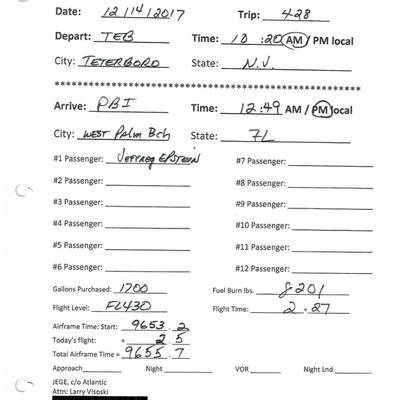 Date: 12/14/2017 Trip: 428
Depart: TEB Time: 10:20 AM / PM local
City: TETERBORO State: N.J.
**********************************************************
Arrive: PBI Time: 12:49 AM / PM local
City: WEST Palm Bch State: FL
#1 Passenger: JEFFREY EPSTEIN #7 Passenger:
#2 Passenger: #8 Passenger:
#3 Passenger: #9 Passenger:
#4 Passenger: #10 Passenger:
#5 Passenger: #11 Passenger:
#6 Passenger: #12 Passenger:
Gallons Purchased: 1700 Fuel Burn lbs. 8201
Flight Level: FL430 Flight Time: 2 + 27
Airframe Time: Start: 9653.2
Today's flight: + 2.5
Total Airframe Time = 9655.7
Approach Night VOR Night Lnd
JEGE, c/o Atlantic
Attn: Larry Visoski